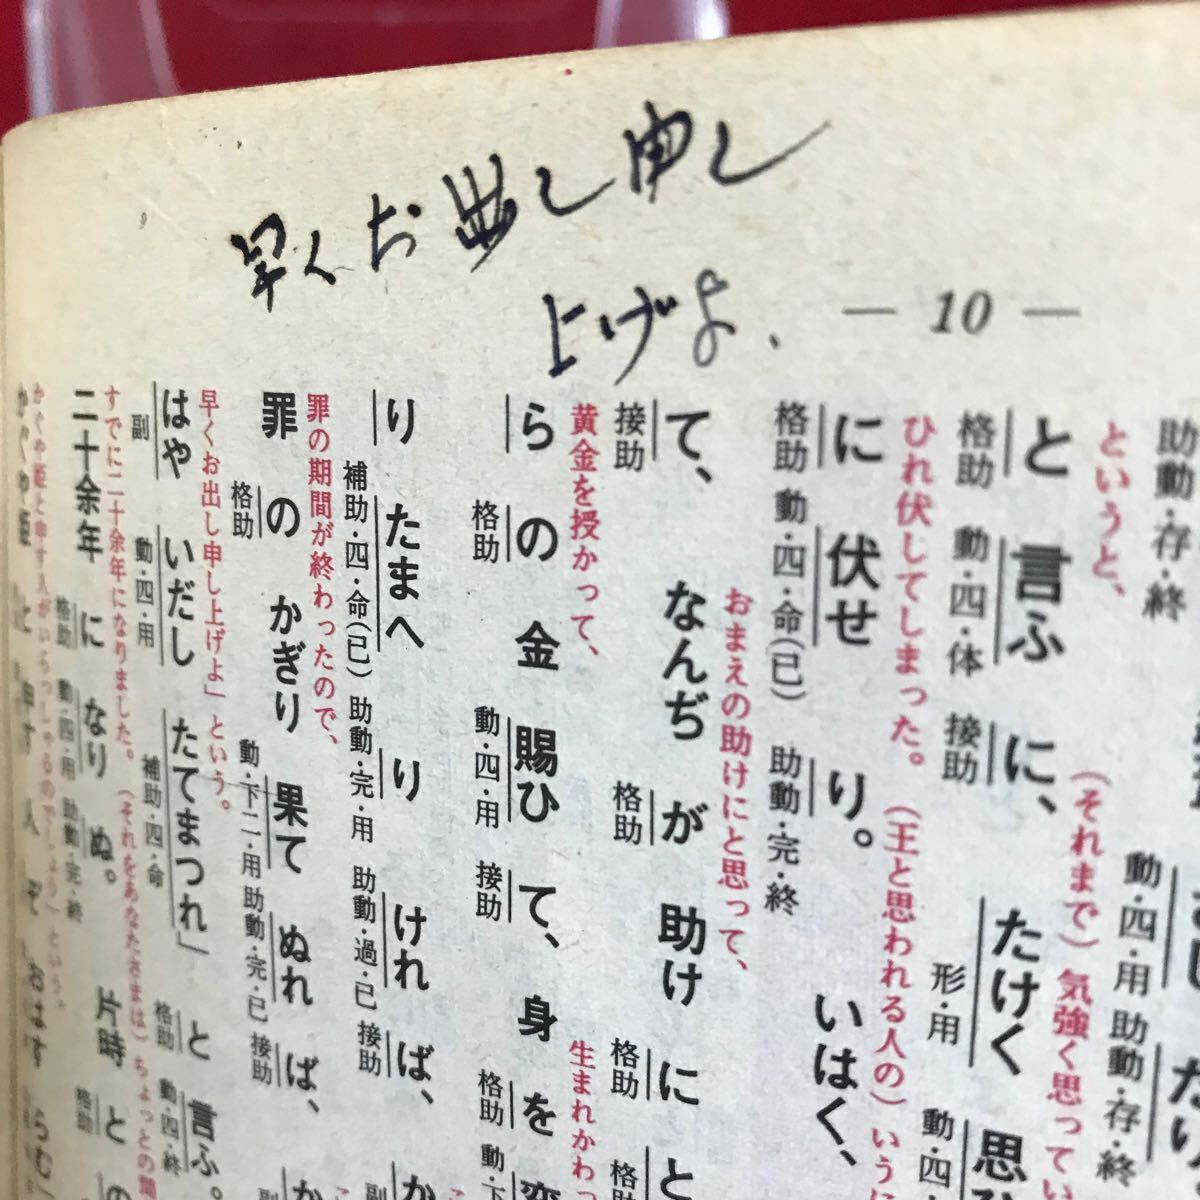 早くお出し申し
上げよ、
— 10 —
助動・存・終
というと、
と言ふに、 たけく 思
格助 動・四・体 接助 形・用 動・四
(それまで)気強く思ってい
ひれ伏してしまった。(王と思われる人の)いうに
に伏せり。 いはく、
格助 動・四・命(已) 助動・完・終
動・四・用 助動・存・終
おまえの助けにと思って、
て、なんぢが助けにと
接助 格助 格助 格助
黄金を授かって、 生まれかわっ
らの金賜ひて、身を変
格助 動・四・用 接助 格助 動・下
りたまへりければ、か
補助・四・命(已) 助動・完・用 助動・過・已 接助 副
罪の期間が終わったので、
罪のかぎり果てぬれば、か
格助 動・下二・用 助動・完・已 接助 副
早くお出し申し上げよ」という。
はやいだしたてまつれ」と言ふ。
副 動・四・用 補助・四・命 格助 動・四・終
すでに二十余年になりました。(それをあなたさまは)ちょっとの間
二十余年になりぬ。 片時との
格助 動・四・用 助動・完・終 格助
かぐや姫と申す人がいらっしゃるのでしょう」という。
かぐや姫と申す人ぞおはすらむ」